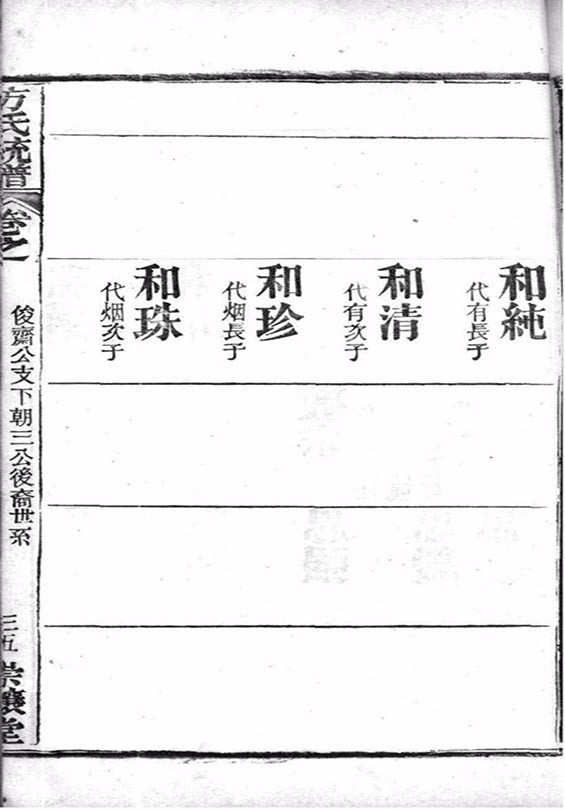 和純
代有長子
和清
代有次子
和珍
代烟長子
和珠
代烟次子
方氏統譜
卷之
俊齋公支下朝三公後裔世系
三五
崇讓堂